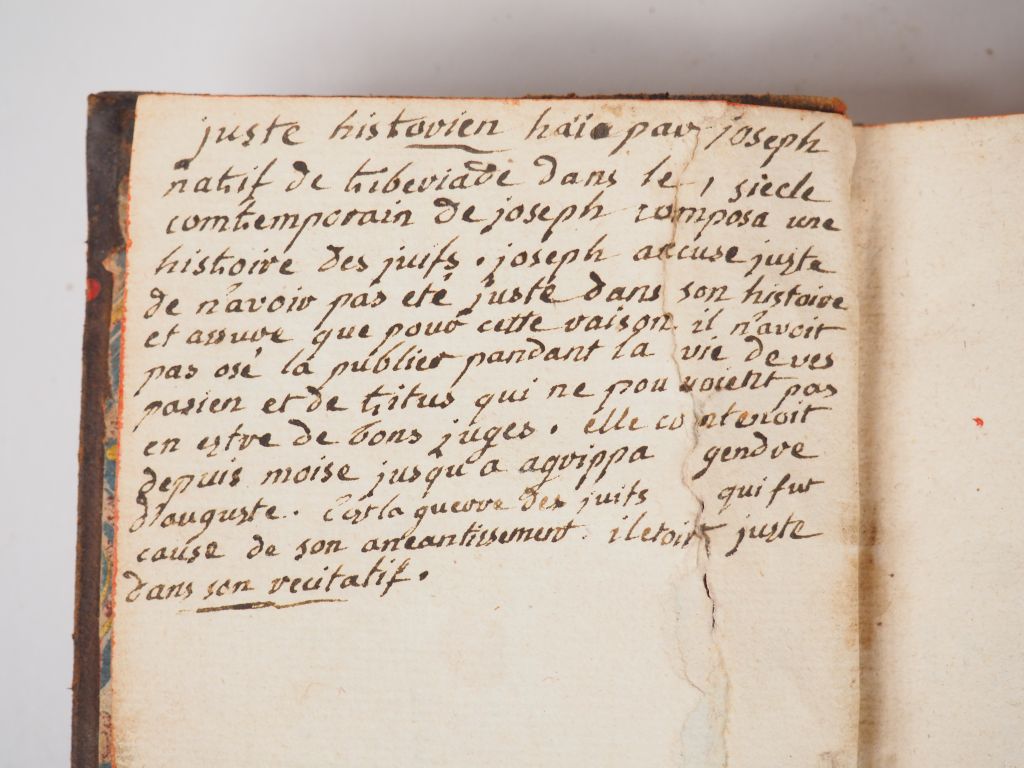 juste historien haï par joseph
natif de tiberiade dans le 1 siecle
comtemporain de joseph composa une
histoire des juifs. joseph accuse juste
de n'avoir pas eté juste dans son histoire
et assure que pour cette raison il n'avoit
pas osé la publier pandant la vie de ves
pasien et de titus qui ne pouvoient pas
en estre de bons juges. elle contenoit
depuis moise jusqu'a agrippa gendre
d'auguste. C'est la guerre des juifs qui fut
cause de son aneantissement. il etoit juste
dans son recitatif.